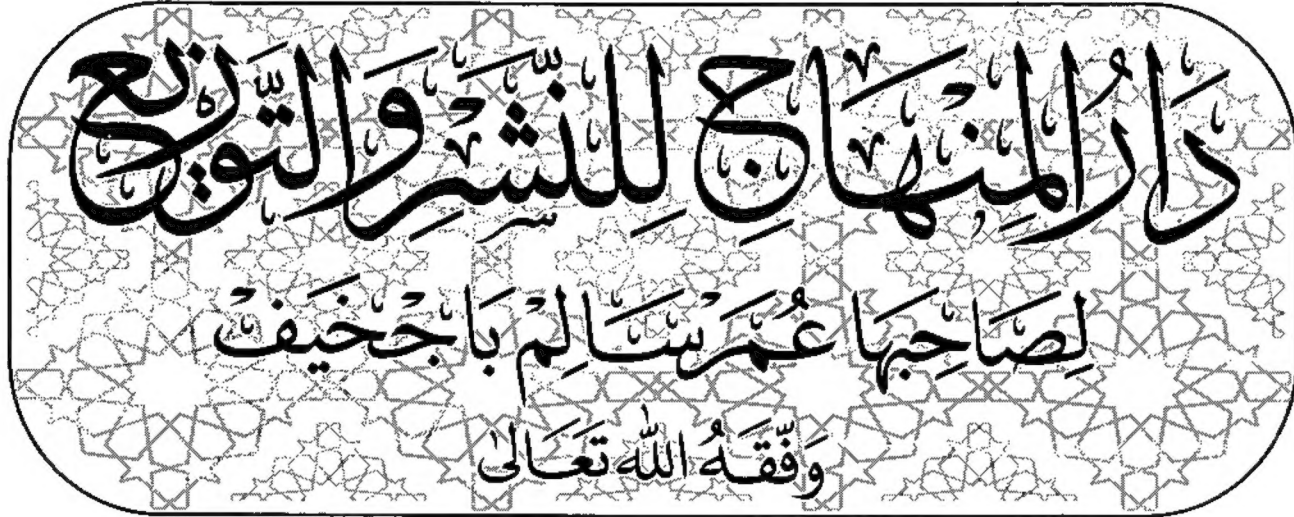 دَارُ المِنْهَاجِ لِلنَّشْرِ وَالتَّوْزِيعِ
لِصَاحِبِهَا عُمَرَ سَالِمْ بَاجخَيفْ
وَفَّقَهُ اللّٰهُ تَعَالىٰ